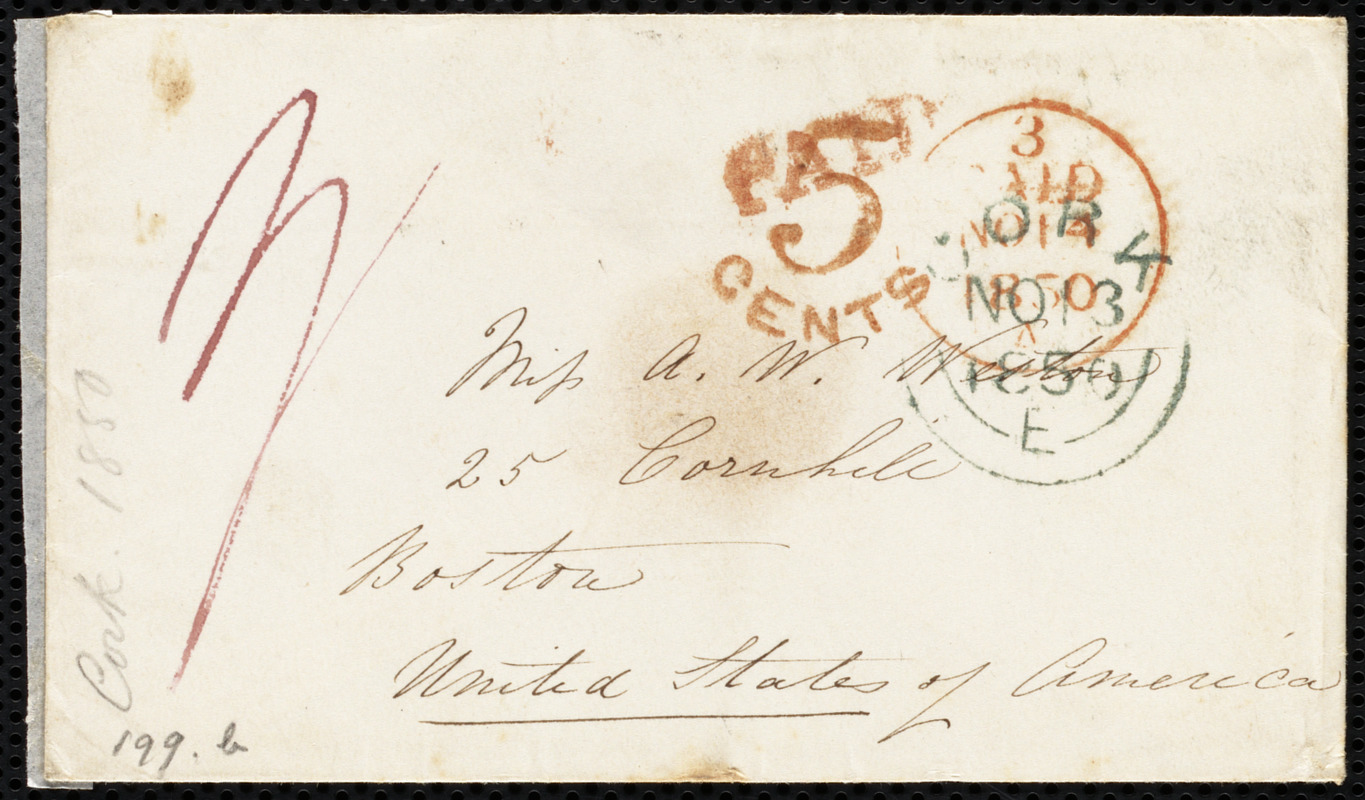 PAID
5
CENTS
3
PAID
NO 14
1850
CORK
NO 13
1850
E
Miss A. W. Weston
25 Cornhill
Boston
United States of America
Cork. 1850
199. b